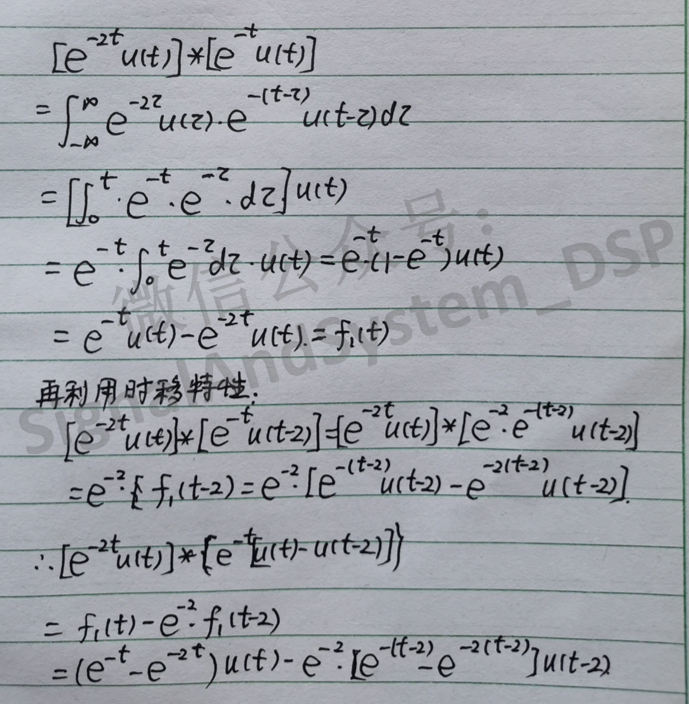 [e^{-2t}u(t)]*[e^{-t}u(t)]
=∫_{-∞}^{∞} e^{-2τ}u(τ)·e^{-(t-τ)}u(t-τ)dτ
=[∫_0^t·e^{-t}·e^{-τ}·dτ]u(t)
=e^{-t}·∫_0^t e^{-τ}dτ·u(t)=e^{-t}·(1-e^{-t})u(t)
=e^{-t}u(t)-e^{-2t}u(t).=f₁(t)
再利用时移特性:
[e^{-2t}u(t)]*[e^{-t}u(t-2)]=[e^{-2t}u(t)]*[e^{-2}·e^{-(t-2)}u(t-2)]
=e^{-2}·f₁(t-2)=e^{-2}·[e^{-(t-2)}u(t-2)-e^{-2(t-2)}u(t-2)].
∴[e^{-2t}u(t)]*{e^{-t}[u(t)-u(t-2)]}
=f₁(t)-e^{-2}·f₁(t-2)
=(e^{-t}-e^{-2t})u(t)-e^{-2}·[e^{-(t-2)}-e^{-2(t-2)}]u(t-2)
微信公众号:
SignalAndSystem_DSP